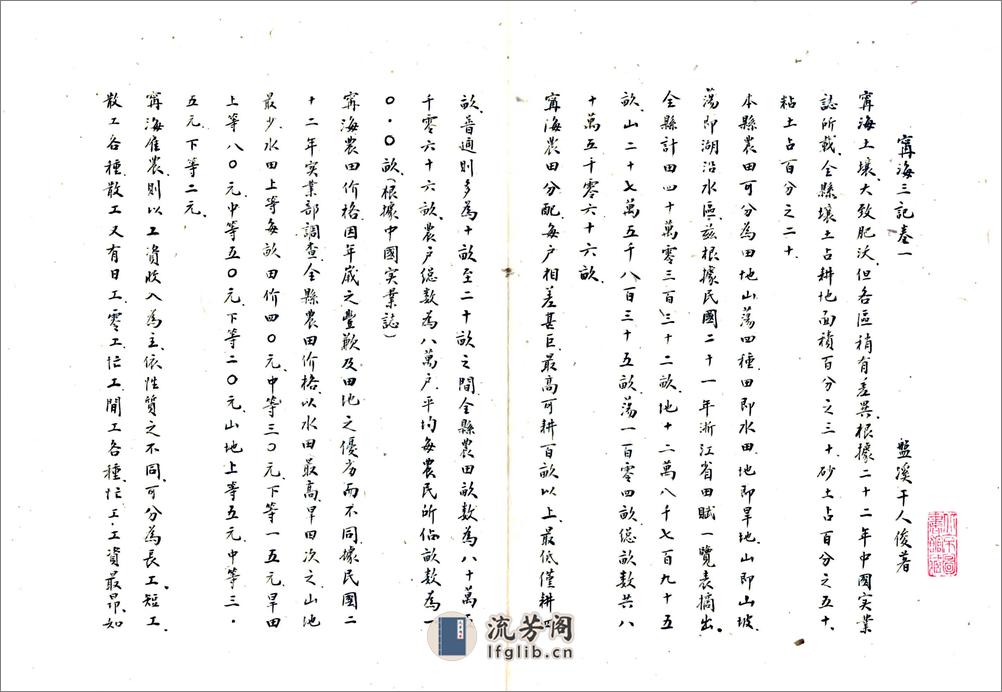 寗海三記卷一
盤溪干人俊著
寗海土壤大致肥沃、但各區稍有差異、根據二十二年中國实業
誌所載、全縣壤土占耕地面積百分之三十、砂土占百分之五十、
粘土占百分之二十、
本縣農田可分為田地山蕩四種、田即水田、地即旱地、山即山坡、
蕩即湖沿水區、茲根據民國二十一年浙江省田賦一覽表摘出、
全縣計田四十萬零三百三十二畝、地十二萬八千七百九十五
畝、山二十七萬五千八百三十五畝、蕩一百零四畝、總畝数共八
十萬五千零六十六畝、
寗海農田分配、每户相差甚巨、最高可耕百畝以上、最低僅耕四
畝、普通則多為十畝至二十畝之間、全縣農田畝数為八十萬五
千零六十六畝、農户總数為八萬户、平均每農民所佔畝数為一
〇・〇〇畝（根據中國実業誌）
寗海農田价格、因年嵗之豐歉及田地之優劣而不同、據民國二
十二年実業部調查、全縣農田价格、以水田最高、旱田次之、山地
最少、水田上等每畝田价四〇元、中等三〇元、下等一五元、旱田
上等八〇元、中等五〇元、下等二〇元、山地上等五元、中等三・
五元、下等二元、
寗海僱農、則以工資收入為主、依性質之不同、可分為長工、短工、
散工各種、散工又有日工、零工、忙工、閒工各種、忙工・工資最昂、如
流芳阁
lfglib.cn